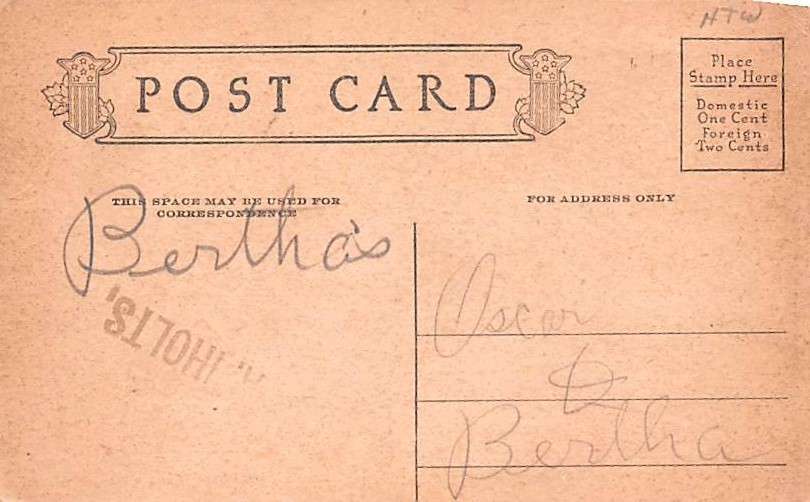 HTW
POST CARD
Place
Stamp Here
Domestic
One Cent
Foreign
Two Cents
THIS SPACE MAY BE USED FOR
CORRESPONDENCE
FOR ADDRESS ONLY
Bertha's
HOLTS,
Oscar
&
Bertha